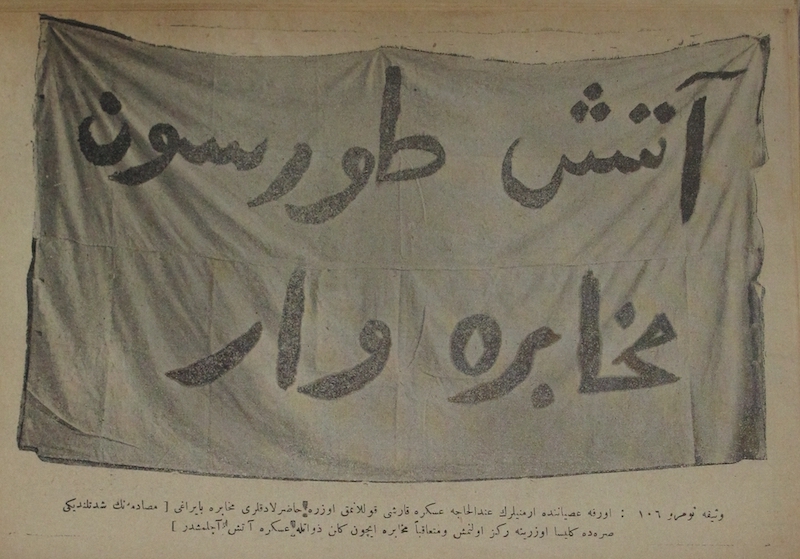 آتش طورسون
مخابره وار
وثيقه نومرو ١٠٦ : اورفه عصياننده ارمنيلرك عندالحاجه عسكره قارشى قوللانمق اوزره حاضرلادقلرى مخابره بايراغى [ مصادمه‌نك شدتلنديكى
صره‌ده كليسا اوزرينه ركز اولنمش ومتعاقباً مخابره ايچون كلن ذواتله عسكره آتش آچلمشدر ]